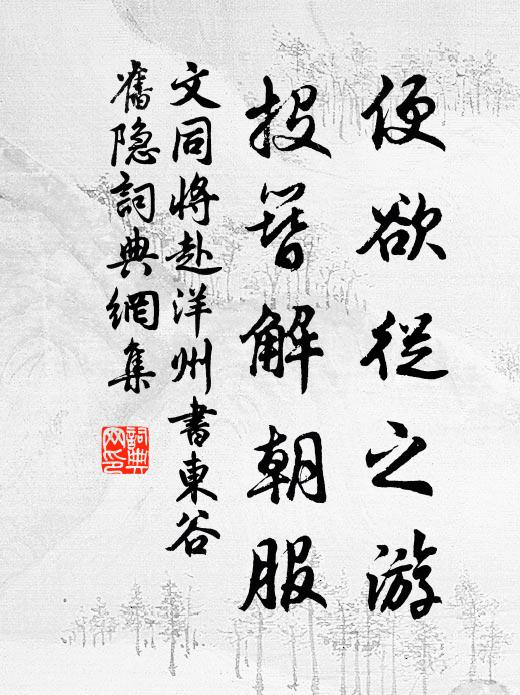 便欲從之游
投簪解朝服
文同將赴洋州書東谷
舊隐詞典網集
詞典网印